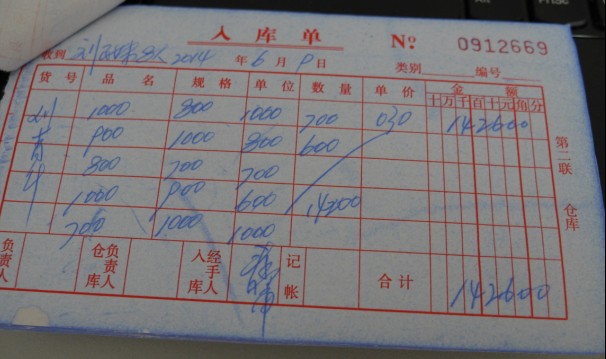 入库单 № 0912669
收到 刘 2014 年 6 月 日 类别 编号
货号 品名 规格 单位 数量 单价 金额
十万千百十元角分
1000 800 1000 700 030 142600
900 1000 800 600
800 700 700
1000 900 600 14200
700 1000 1000
第二联 仓库
负责人 仓库负责人 入库经手人 记帐 合计 142600